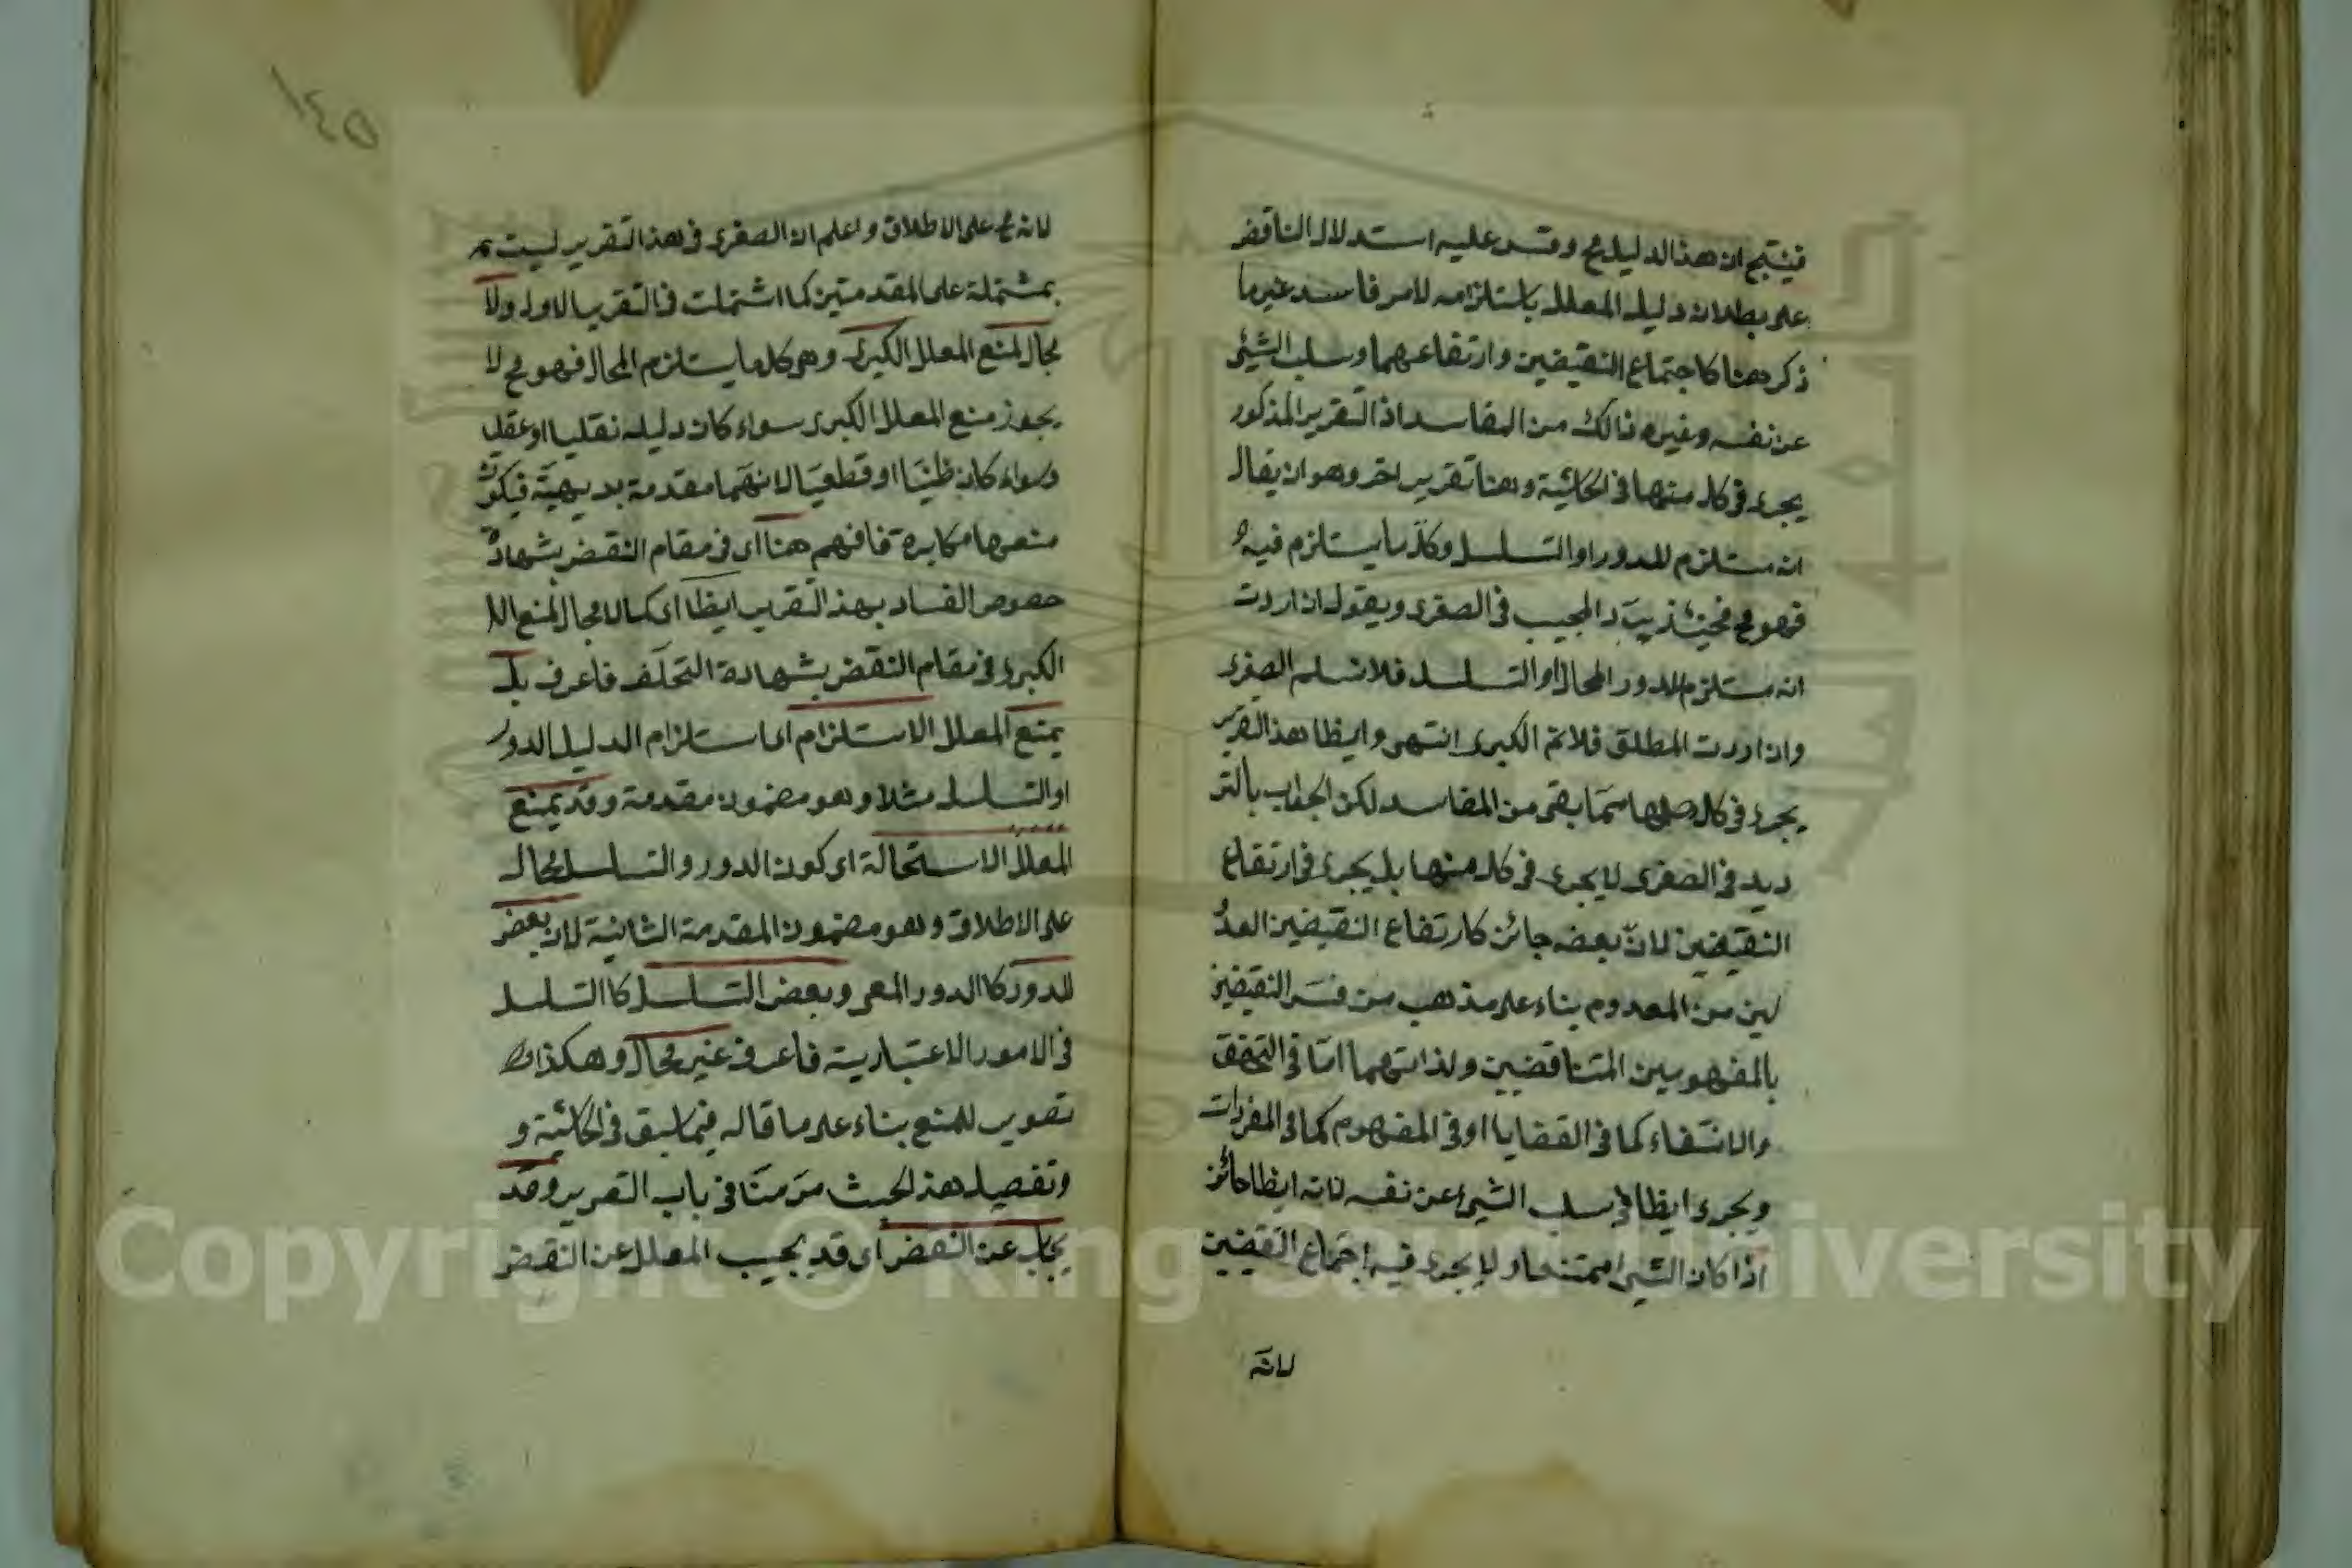 فينتج ان هذا الدليل مح وقس عليه استدلال الناقض
على بطلان دليل المعلل باستلزامه لامر فاسد غير ما
ذكر ههنا كاجتماع النقيضين وارتفاعهما وسلب الشئ
عن نفسه وغير ذالك من المفاسد اذ التقرير المذكور
يجرى فى كل منها فى الحاشية وهنا تقرير اخر وهو ان يقال
انه مستلزم للدور او التسلسل وكل ما يستلزم فيه
فهو مح فحينئذ يردد المجيب فى الصغرى ويقول ان اردت
انه مستلزم للدور المحال او التسلسل فلا نسلم الصغرى
وان اردت المطلق فلانم الكبرى انتهى وايظا هذا التقرير
يجرى فى كل مما بقى من المفاسد لكن الجواب بالتر
ديد فى الصغرى لا يجرى فى كل منها بل يجرى فى ارتفاع
النقيضين لانّ بعضه جائز كارتفاع النقيضين العدُ
لين من المعدوم بناء على مذهب من فسر النقيضين
بالمفهومين المتناقضين ولذاتهما امّا فى التحقق
والانتفاء كما فى القضايا او فى المفهوم كما فى المفردات
ويجرى ايظا فى سلب الشئ عن نفسه لانه ايظا جائز
اذا كان الشئ ممتنعا و لا يجرى فيه اجتماع النقيضين
لانه
١٤٥
لانه مح على الاطلاق واعلم ان الصغرى فى هذا التقرير ليست
بمشتملة على المقدمتين كما اشتملت فى التقرير الاول ولا
مجال لمنع المعلل الكبرى وهى كل ما يستلزم المحال فهو مح لا
يجوز منع المعلل الكبرى سواء كان دليله نقليا او عقليا
وسواء كان ظنيّا او قطعيّا لانهما مقدمة بديهيّة فيكون
منعها مكابرة فافهم هنا اى فى مقام النقض بشهادة
خصوص الفساد بهذ التقرير ايظا اى كما لا مجال لمنع
الكبرى فى مقام النقض بشهادة التخلّف فاعرف بل
يمنع المعلل الاستلزام اى استلزام الدليل الدور
او التسلسل مثلا وهو مضمون مقدمة وقد يمنع
المعلل الاستحالة اى كون الدور والتسلسل محال
على الاطلاق وهو مضمون المقدمة الثانية لان بعض
الدور كا الدور المعى وبعض التسلسل كا التسلسل
فى الامور الاعتبارية فاعرف غير محال وهكذا
تصوير للمنع بناء على ما قاله فيما سبق فى الحاشية و
وتفصيل هذ البحث مرّ منّا فى باب التعرير وقد
يجاب عن النقض اى قد يجيب المعلل عن النقض
Copyright © King Saud University